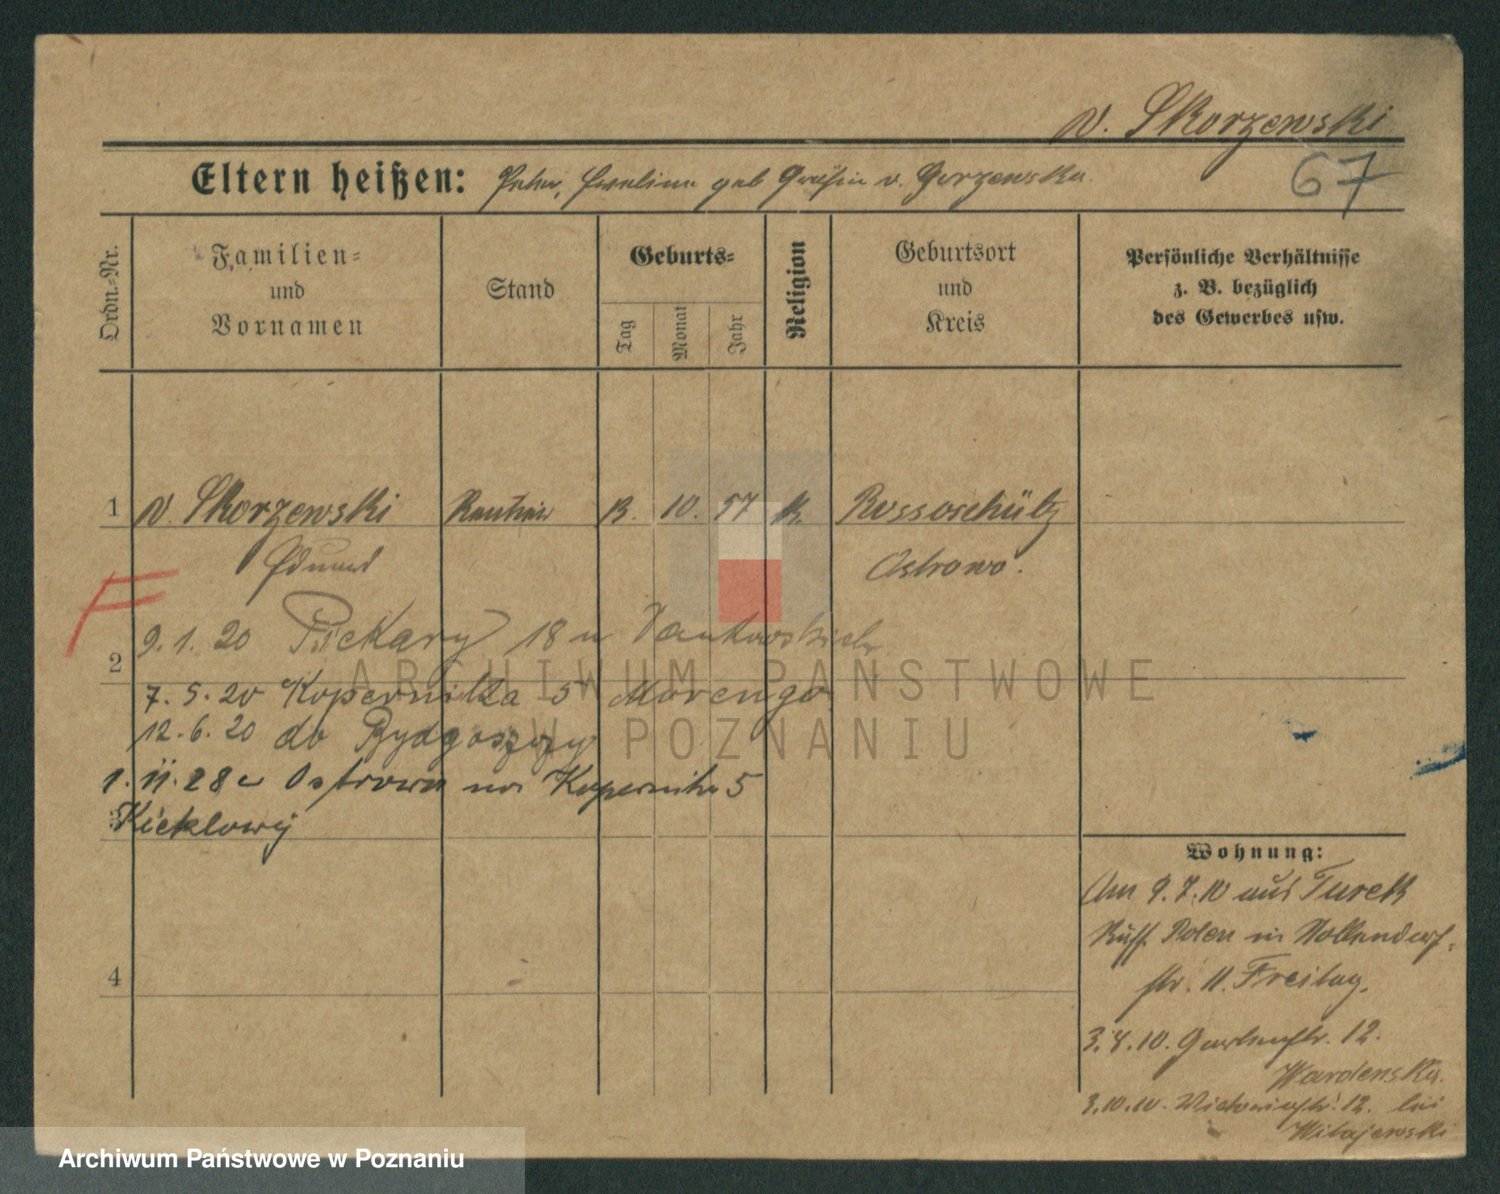 v. Skorzewski
Eltern heißen: geb Gräfin v. Gorzenska
67
Ordn.-Nr.
Familien-
und
Vornamen
Stand
Geburts-
Tag
Monat
Jahr
Religion
Geburtsort
und
Kreis
Persönliche Verhältnisse
z. B. bezüglich
des Gewerbes usw.
1 v. Skorzewski Rentier 13. 10. 57 k. Rossoschütz
Eduard Ostrowo.
F
9.1.20 Piekary 18 u
2
7.5.20 Kopernika 5 Marengo
12.6.20 do Bydgoszczy
1.11.28 Ostrowa na Kopernika 5
3
4
Wohnung:
Am 9.7.10 aus Turek
Russ. Polen in Nollendorf-
str. 11. Freitag.
3.8.10. Gartenstr. 12.
Wardenska.
3.10.10. Victoriastr. 12. bei